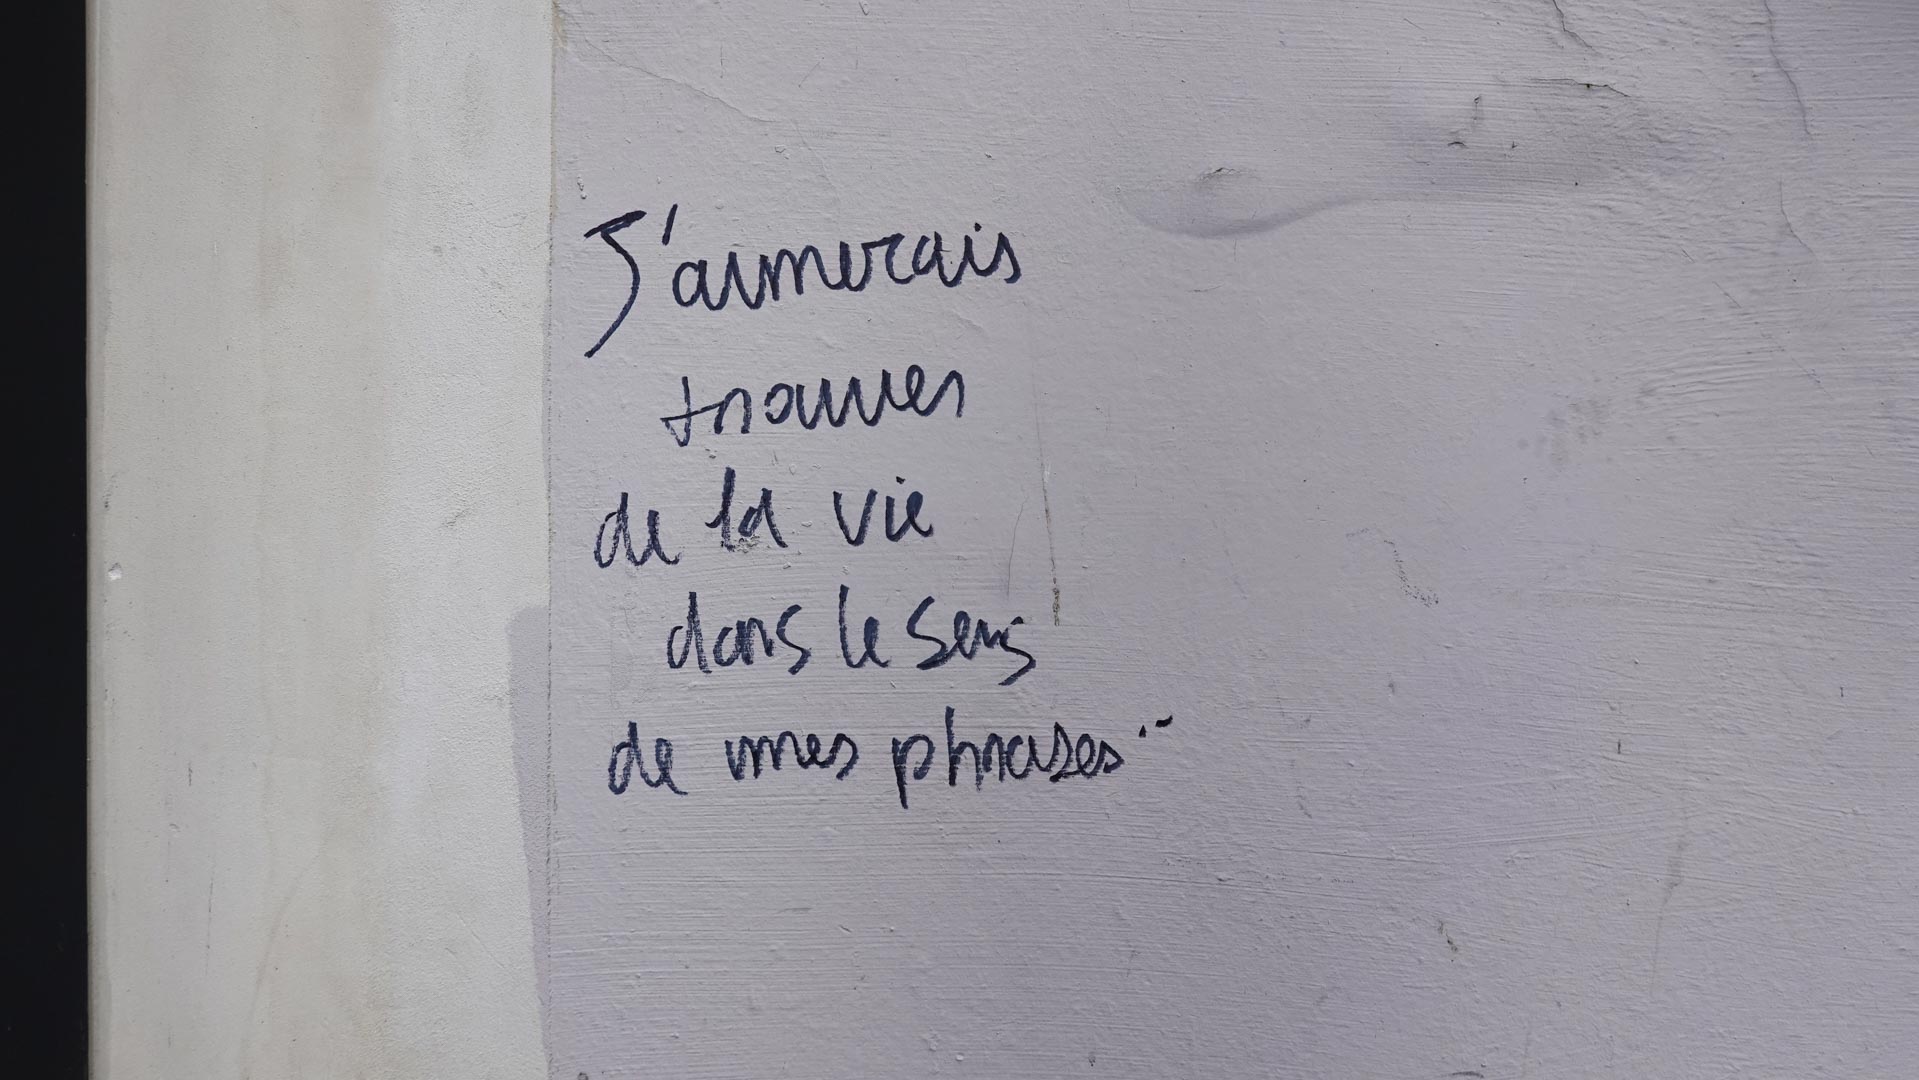 J'aimerais
trouver
de la vie
dans le sens
de mes phrases..